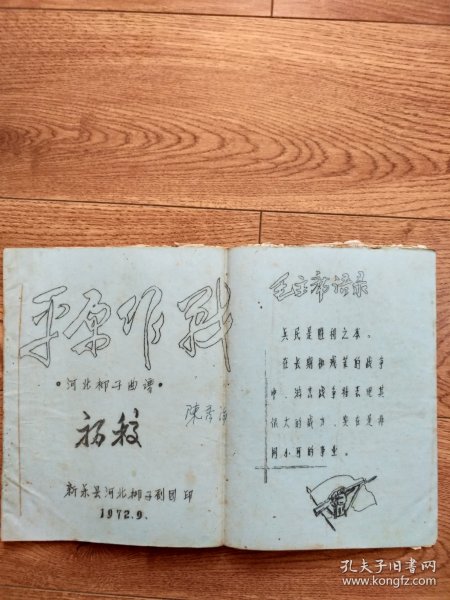 平原作战
·河北梆子曲谱·
初稿
新乐县河北梆子剧团 印
1972.9.
毛主席语录
兵民是胜利之本。
在长期和残酷的战争
中，游击战争将表现其
很大的威力，实在是非
同小可的事业。
孔夫子旧书网
www.kongfz.com